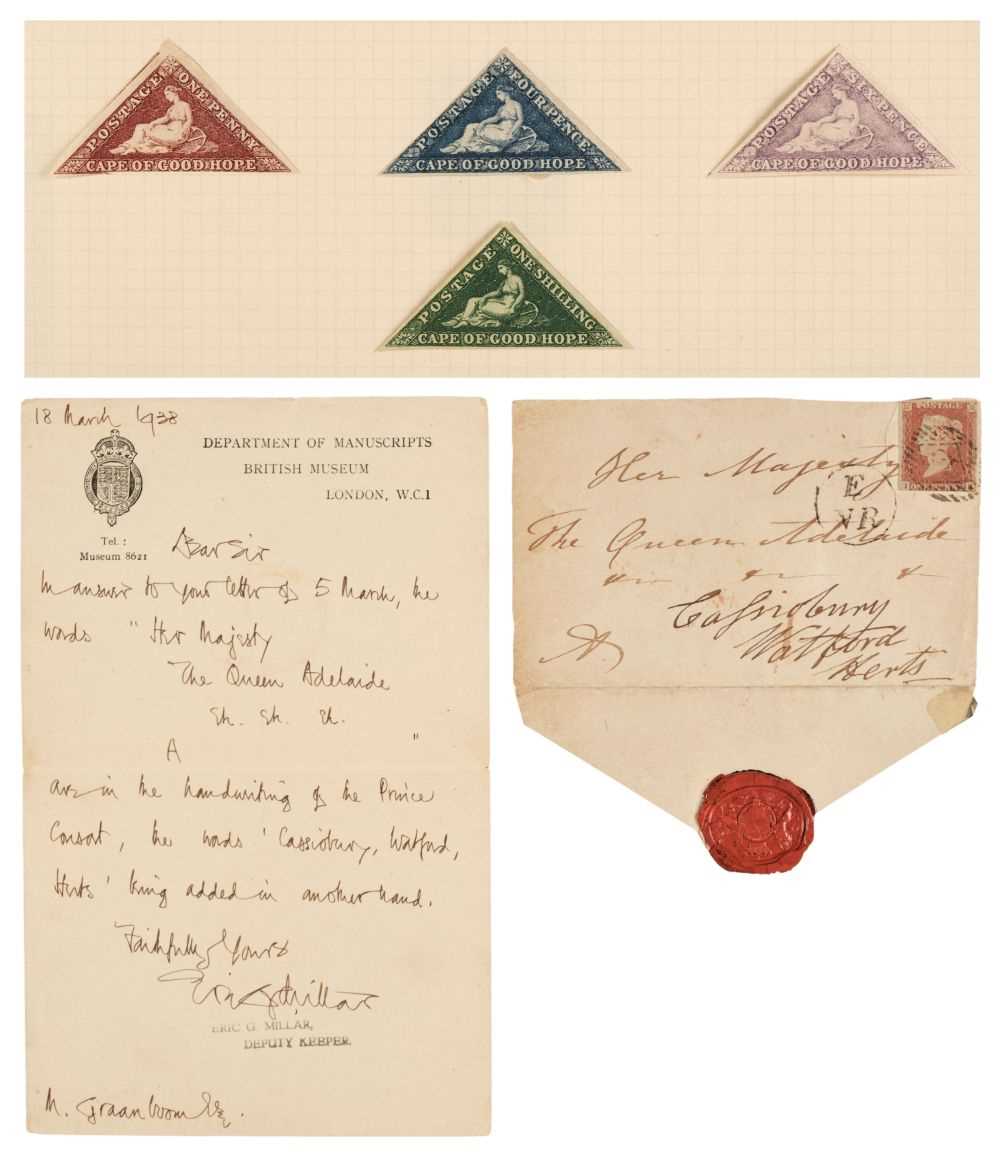 POSTAGE ONE PENNY
CAPE OF GOOD HOPE
POSTAGE FOUR PENCE
CAPE OF GOOD HOPE
POSTAGE SIX PENCE
CAPE OF GOOD HOPE
POSTAGE ONE SHILLING
CAPE OF GOOD HOPE
18 March 1938
DEPARTMENT OF MANUSCRIPTS
BRITISH MUSEUM
LONDON, W.C.1
Tel.:
Museum 8621
Dear Sir
In answer to your letter of 5 March, the
words " Her Majesty
The Queen Adelaide
&c. &c. &c.
A "
are in the handwriting of the Prince
Consort, the words 'Cassiobury, Watford,
Herts' being added in another hand.
Faithfully Yours
Eric G Millar
ERIC G. MILLAR,
DEPUTY KEEPER.
M. Graanboom Esq.
POSTAGE
Her Majesty
E
NR
The Queen Adelaide
&c &c &c
Cassiobury
A.
Watford
Herts